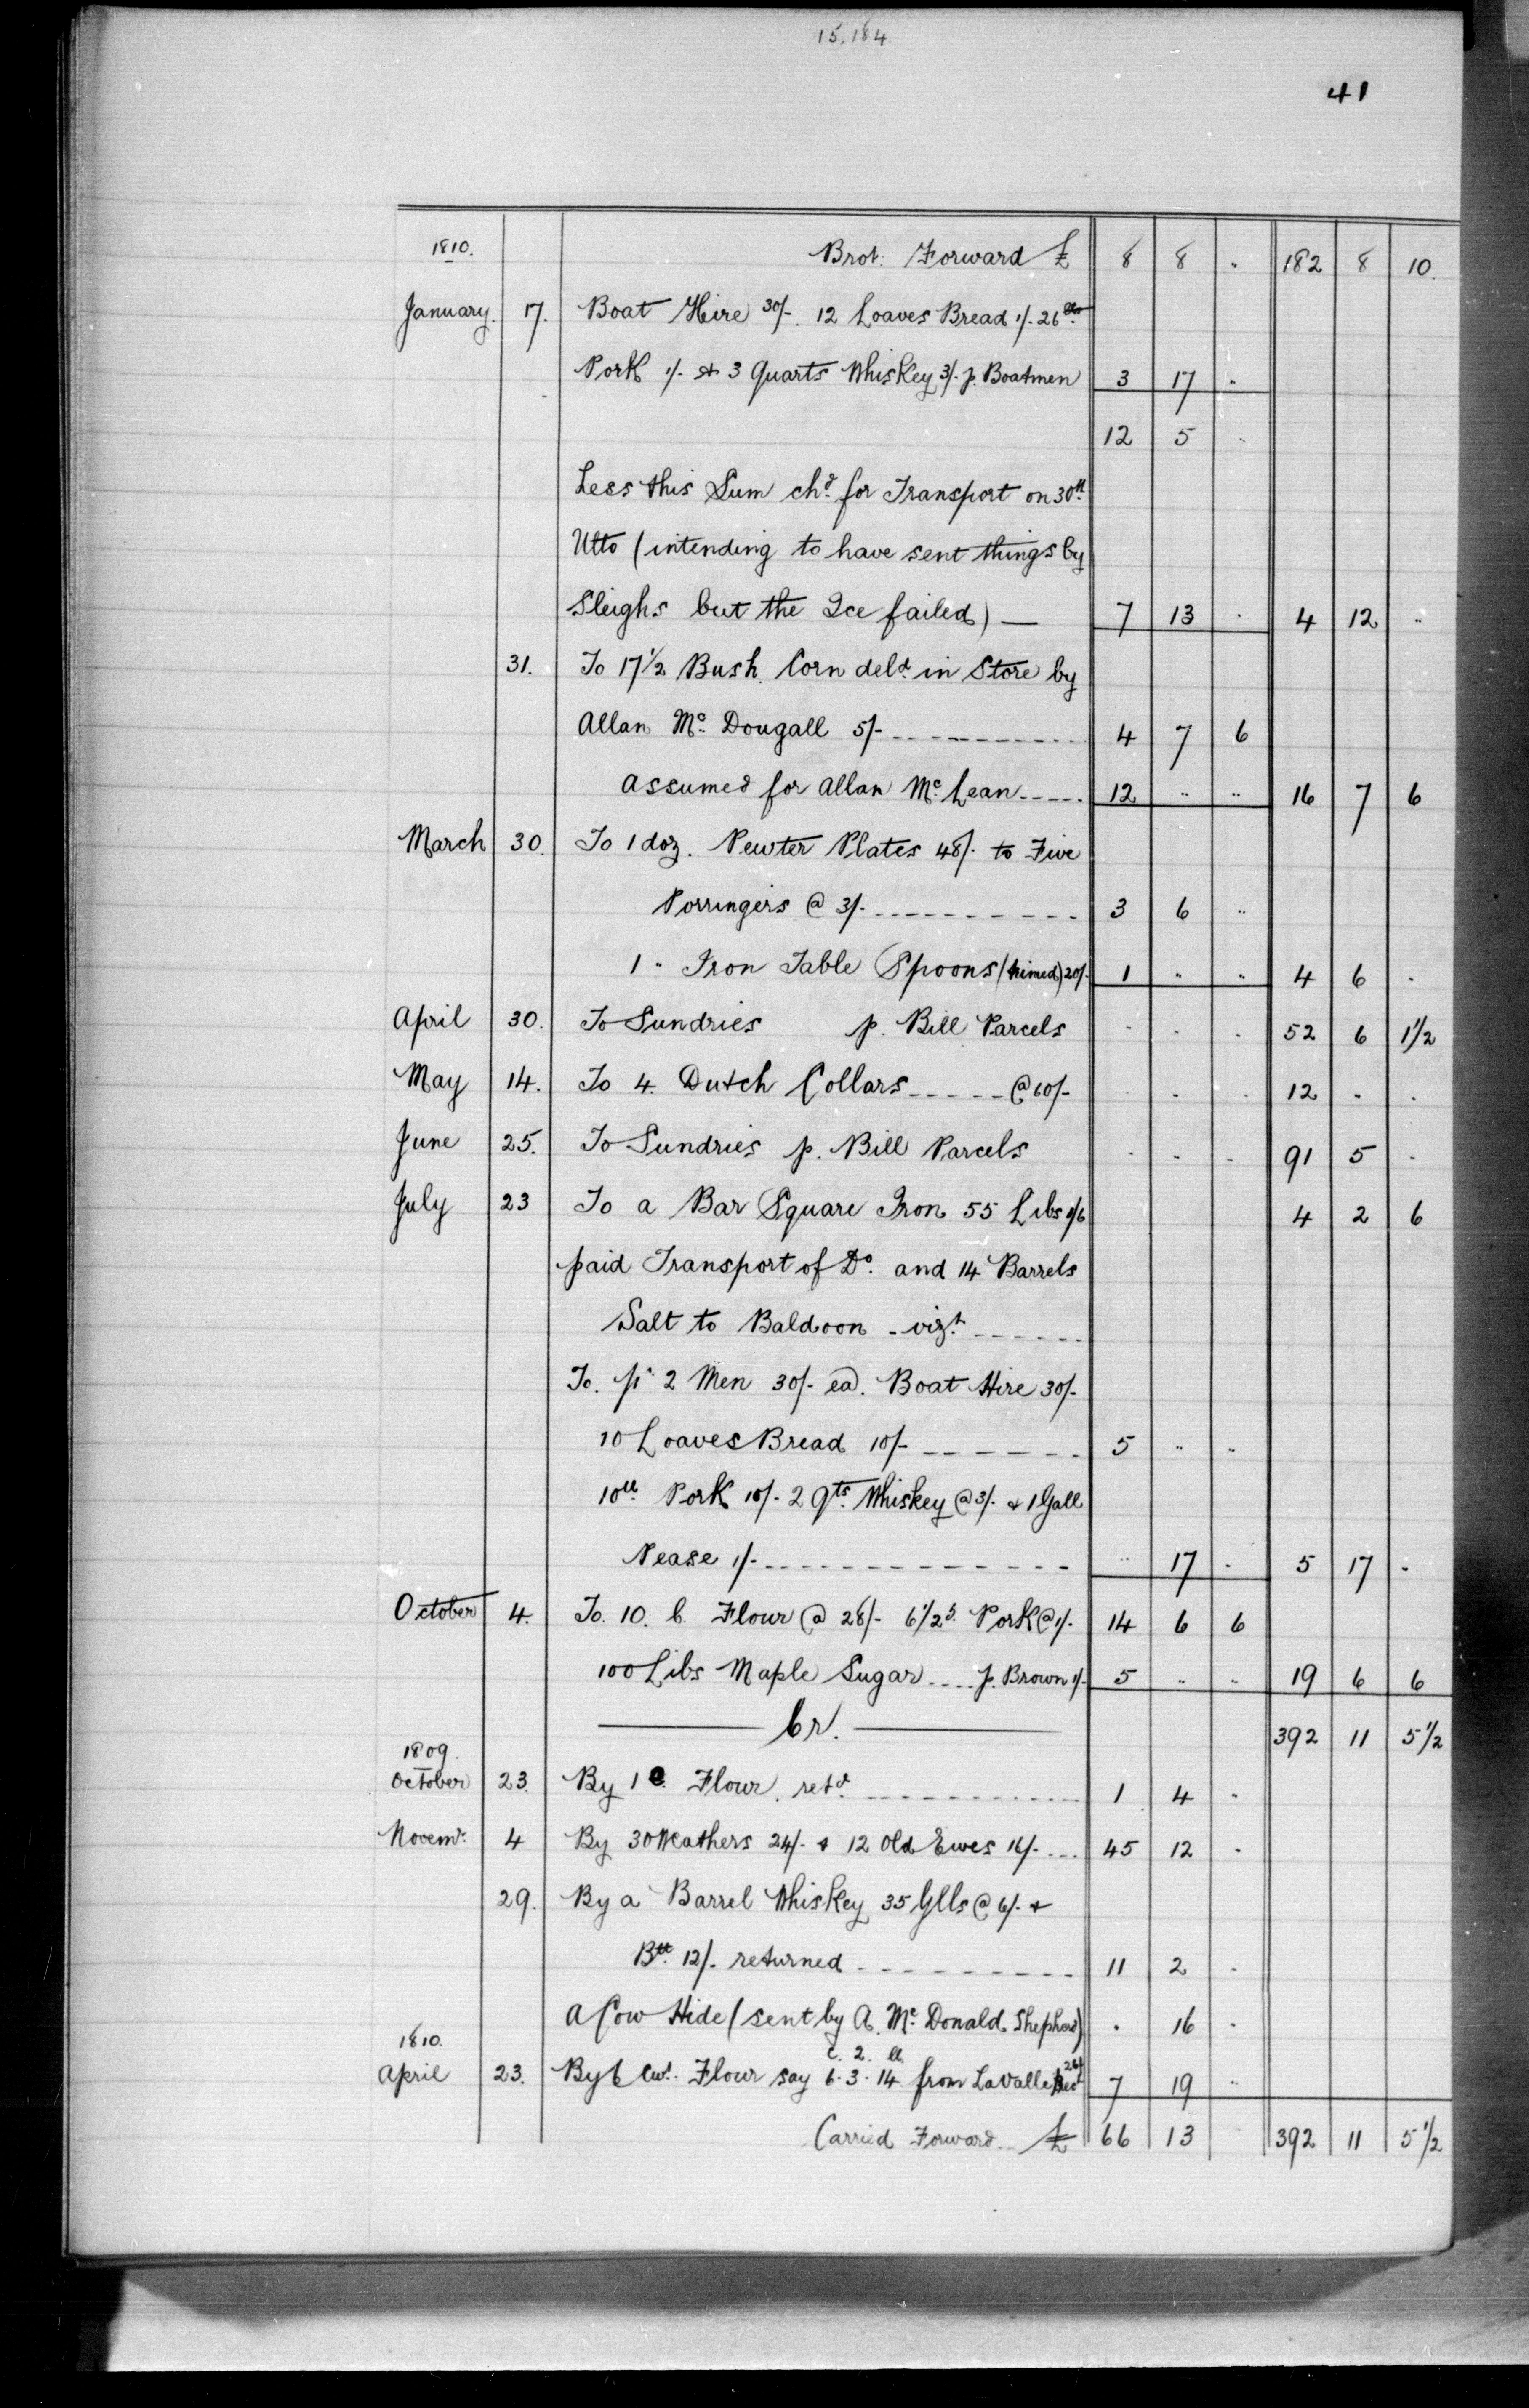 15,184.
41
1810. Brot. Forward £ 8 8 " 182 8 10.
January. 17. Boat Hire 30/-. 12 Loaves Bread 1/. 26 lbs
Pork 1/- & 3 Quarts Whiskey 3/- p. Boatmen 3 17 "
12 5 "
Less this Sum chd for Transport on 30th
Ulto (intending to have sent things by
Sleighs but the Ice failed) — 7 13 . 4 12 "
31. To 17 1/2 Bush. Corn deld in Store by
Allan Mc Dougall 5/- 4 7 6
Assumed for Allan Mc Lean 12 " " 16 7 6
March 30. To 1 doz. Pewter Plates 48/. to Five
Porringers @ 3/- 3 6 "
1 " Iron Table Spoons (tinned) 20/- 1 " " 4 6 .
April 30. To Sundries p. Bill Parcels . . . 52 6 1 1/2
May 14. To 4. Dutch Collars @ 60/- . . . 12 . .
June 25. To Sundries p. Bill Parcels . . . 91 5 .
July 23 To a Bar Square Iron 55 Libs 1/6 4 2 6
paid Transport of Do. and 14 Barrels
Salt to Baldoon - vizt
To. pd 2 Men 30/- ea. Boat Hire 30/-
10 Loaves Bread 10/- 5 " "
10 ll. Pork 10/- 2 Qts. Whiskey @ 3/- & 1 Gall
Pease 1/- " 17 . 5 17 .
October 4. To. 10. C. Flour @ 28/- 6 1/2 lb. Pork @ 1/- 14 6 6
100 Libs Maple Sugar p. Brown 1/- 5 " " 19 6 6
Cr. 392 11 5 1/2
1809.
October 23. By 1 C. Flour, retd. 1 4 "
Novemr. 4 By 30 Weathers 24/- & 12 Old Ewes 16/- 45 12 "
29. By a Barrel Whiskey 35 Glls @ 6/- &
Bll. 12/- returned 11 2 "
A Cow Hide (sent by A. Mc Donald Shepherd) . 16 "
1810. C. 2. ll.
April 23. By 6 Cwt. Flour say 6.3.14 from LaValle 7 19 "
Carried Forward £ 66 13 392 11 5 1/2